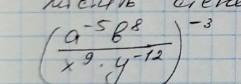 (a⁻⁵b⁸ / x⁹ · y⁻¹²)⁻³